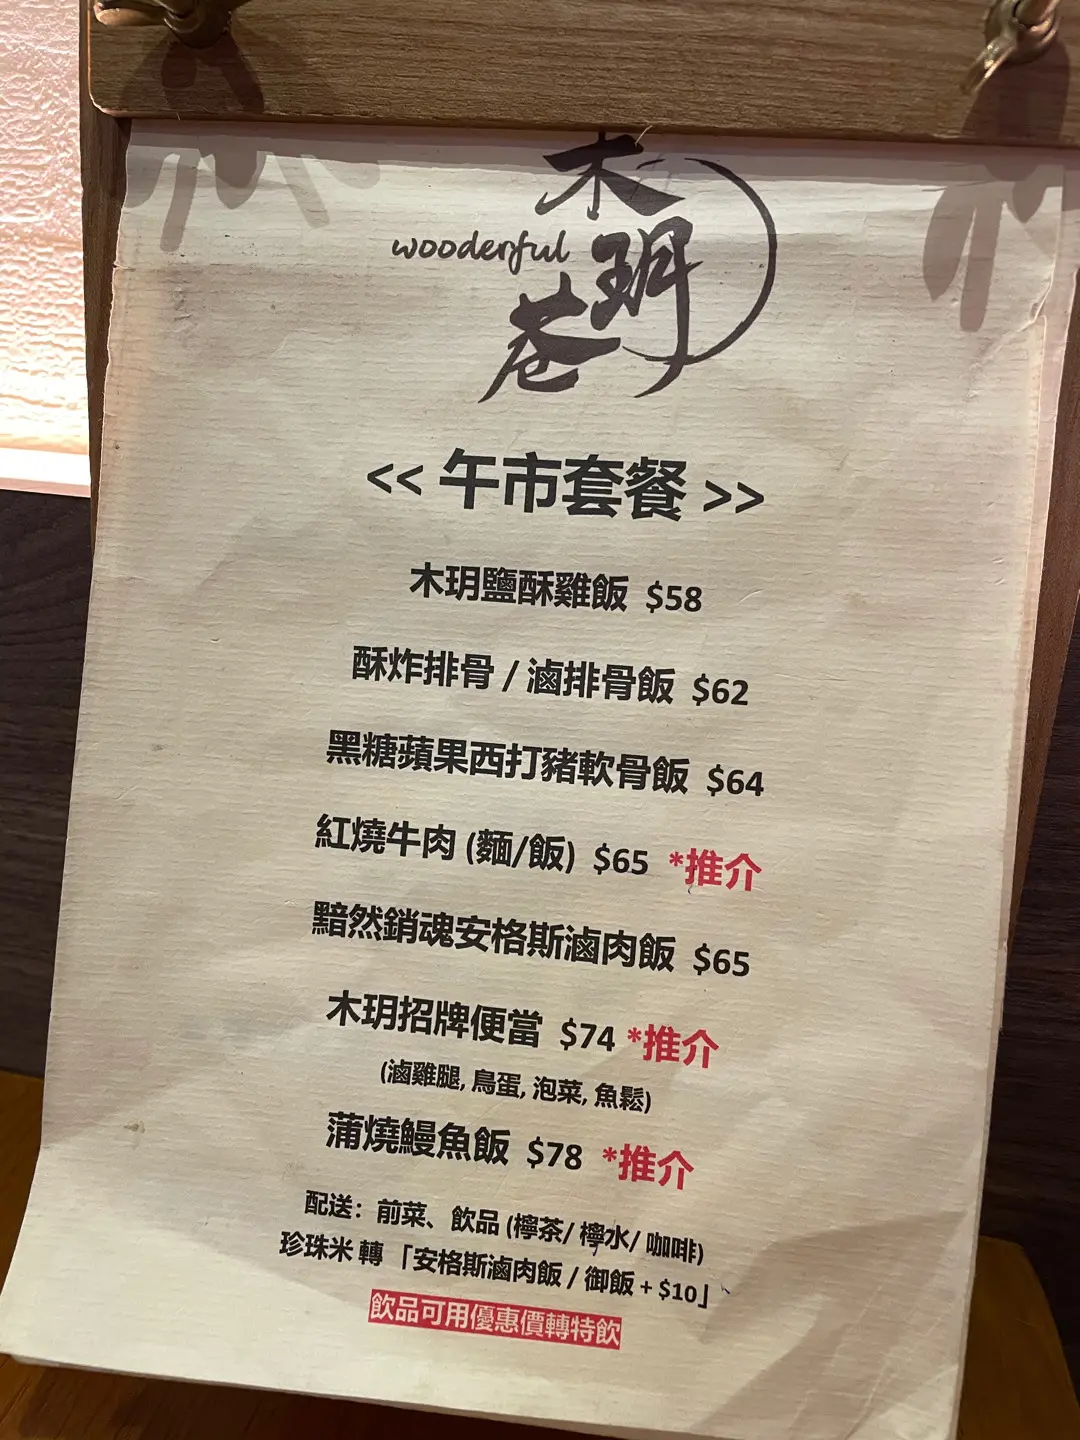 木玥巷
wooderful
<< 午市套餐 >>
木玥鹽酥雞飯 $58
酥炸排骨 / 滷排骨飯 $62
黑糖蘋果西打豬軟骨飯 $64
紅燒牛肉 (麵/飯) $65 *推介
黯然銷魂安格斯滷肉飯 $65
木玥招牌便當 $74 *推介
(滷雞腿, 鳥蛋, 泡菜, 魚鬆)
蒲燒鰻魚飯 $78 *推介
配送：前菜、飲品 (檸茶/ 檸水/ 咖啡)
珍珠米 轉 「安格斯滷肉飯 / 御飯 + $10」
飲品可用優惠價轉特飲